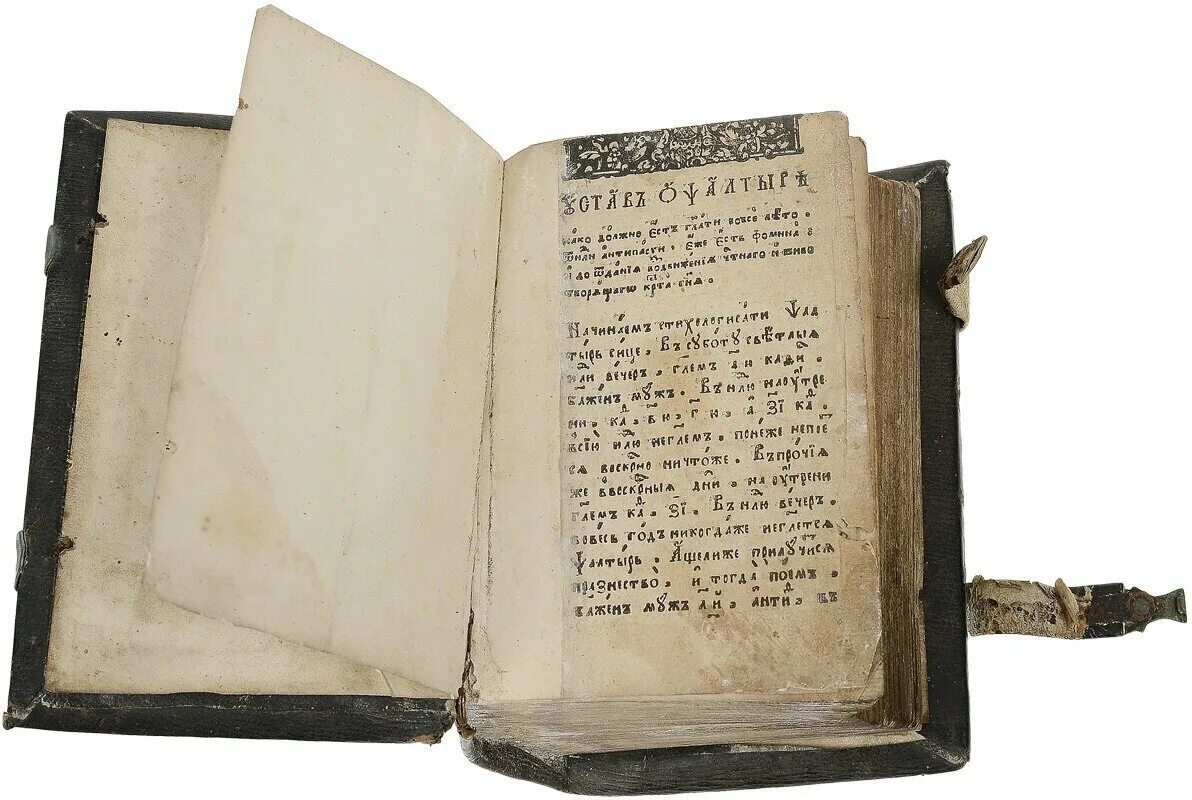 ᲂуста́въ ѽ ѱалтырѣ
ка́ко до́лжно є҆́сть гл҃ати вовсе лѣ́то .
ѿнли антипасхи . є҆́же є҆́сть фомина ѕ
и҆ до ѿда́нїѧ воздвиженїѧ чтна́го и҆ живо
творѧ́щагѡ крта гнѧ .
Начина́емъ стихологиса́ти ѱал
ты́рь си́це . Въ сꙋбо́тꙋ свѣ́тлыѧ
нли ве́черъ . глемъ а҃ю кади .
блаже́нъ мꙋ́жъ . Въ нлю на оу҆́тре
ни . ка . в҃ю . г҃ю . а зі ка .
всїю нлю не глемъ . поне́же непое́т
сѧ воскрно ничто́же . Въ про́чїѧ
же в воскрныѧ дни́ . на оу҆́трени
глемъ ка . зі . Въ нлю ве́черъ .
вове́сь го́дъ никогда́же не глетсѧ
ѱалты́рь . А҆́ще ли же прилꙋчи́сѧ
пра́зднество . и҆ тогда́ пое́мъ .
блаже́нъ мꙋ́жъ а҃й . а҆нти . въ